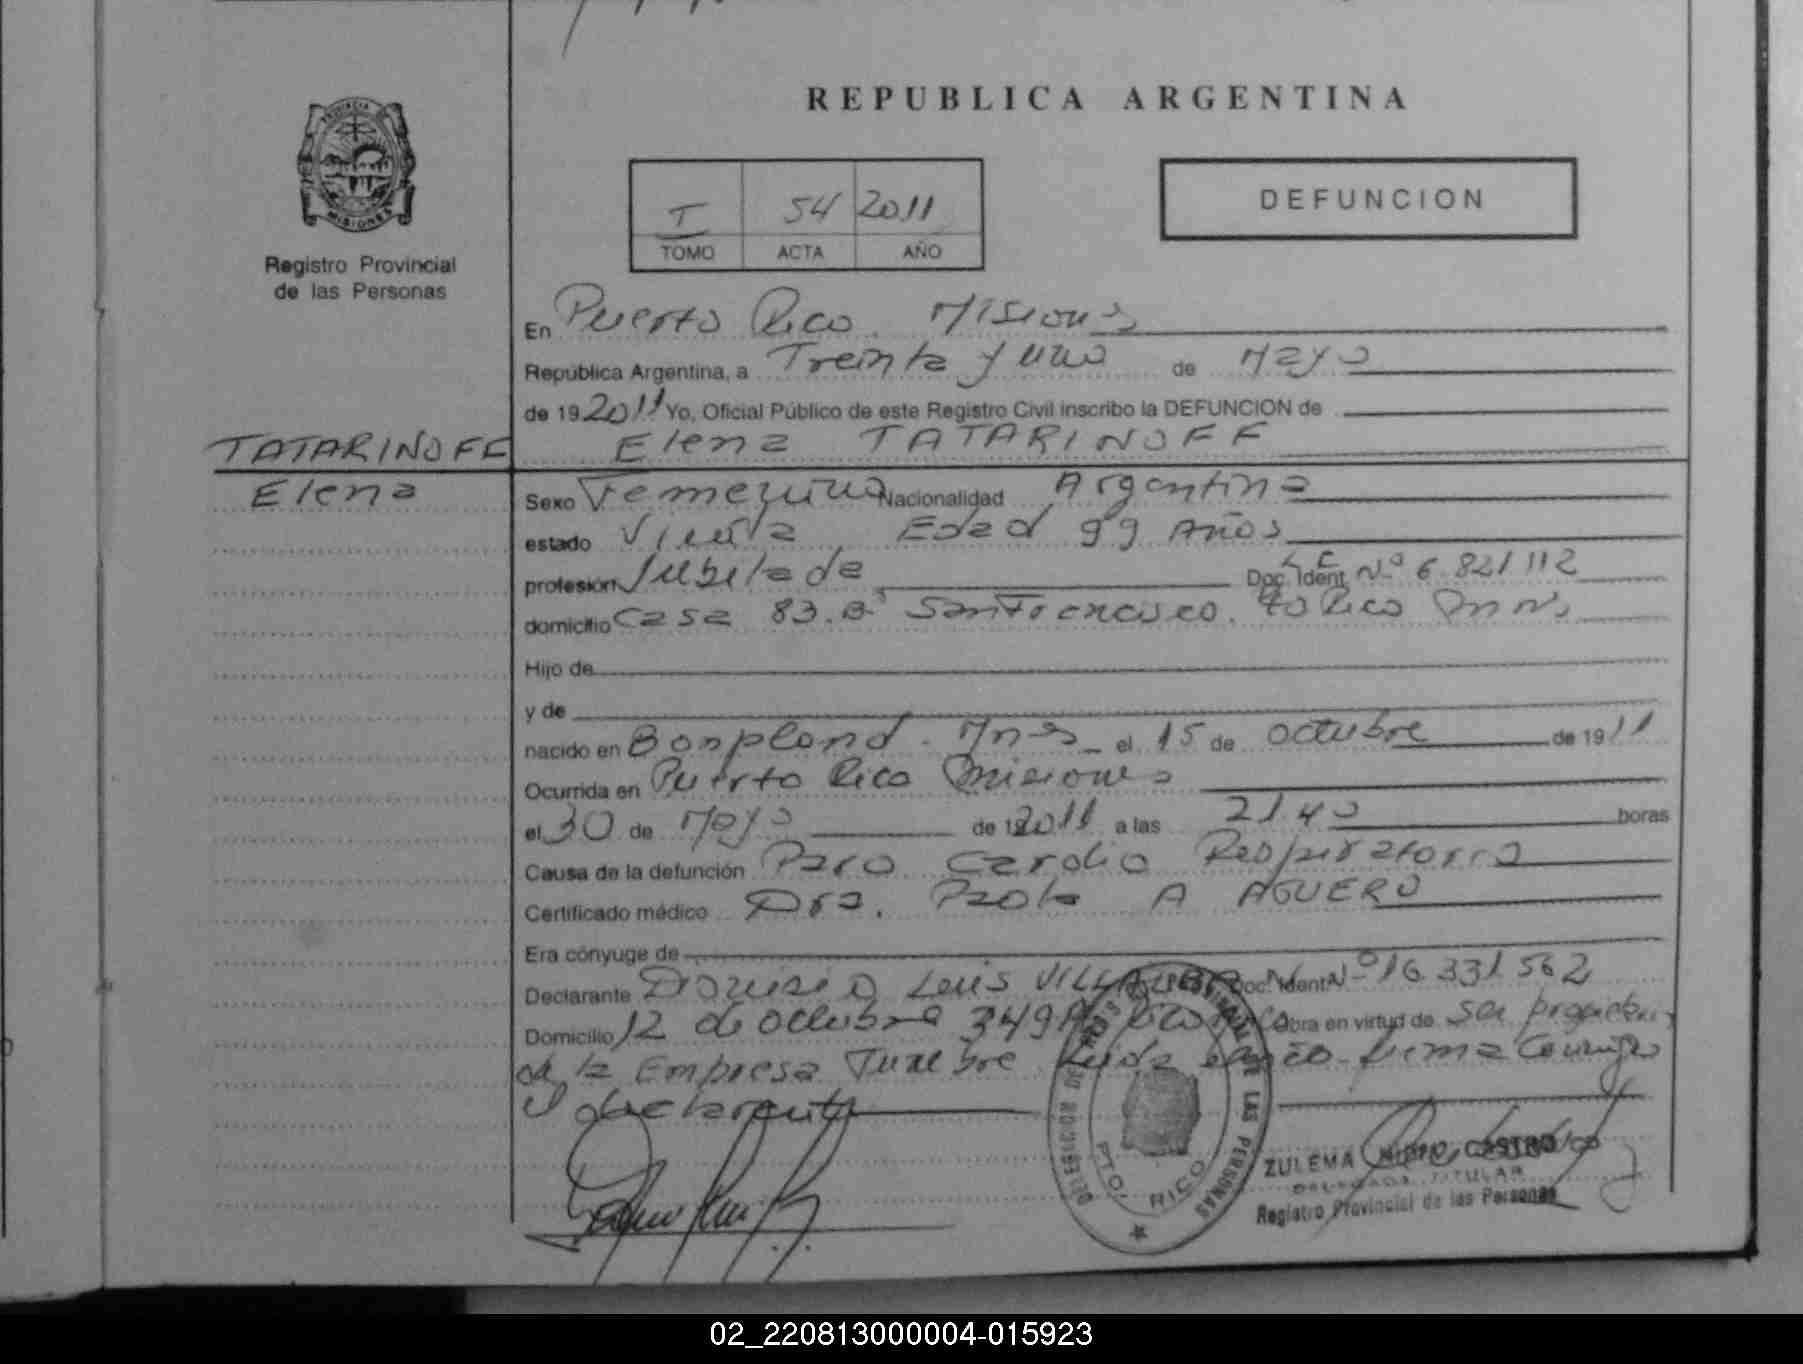 REPUBLICA ARGENTINA
PROVINCIA
MISIONES
Registro Provincial
de las Personas
I 54 2011
TOMO ACTA AÑO
DEFUNCION
En Puerto Rico. Misiones
República Argentina, a Treinta y uno de Mayo
de 19 2011 Yo, Oficial Público de este Registro Civil inscribo la DEFUNCION de
TATARINOFF
Elena TATARINOFF
Elena
Sexo Femenino Nacionalidad Argentina
estado Viuda Edad 99 Años
profesión Jubilada Doc. Ident. Nº 6 821 112
domicilio Casa 83. Bº San Francisco. Pto Rico Mnes
Hijo de
y de
nacido en Bonpland. Mnes el 15 de Octubre de 1911
Ocurrida en Puerto Rico Misiones
el 30 de Mayo de 2011 a las 21 40 horas
Causa de la defunción Paro Cardio Respiratorio
Certificado médico Dra. Paola A AGUERO
Era cónyuge de
Declarante Dionisio Luis Doc. Ident. Nº 16 331 562
Domicilio 12 de Octubre 349 Obra en virtud de ser
de la Empresa Funebre firma Conmigo
el declarante
DE LAS PERSONAS
PTO. RICO
ZULEMA CASTRO
DELEGADA TITULAR
Registro Provincial de las Personas
02_220813000004-015923